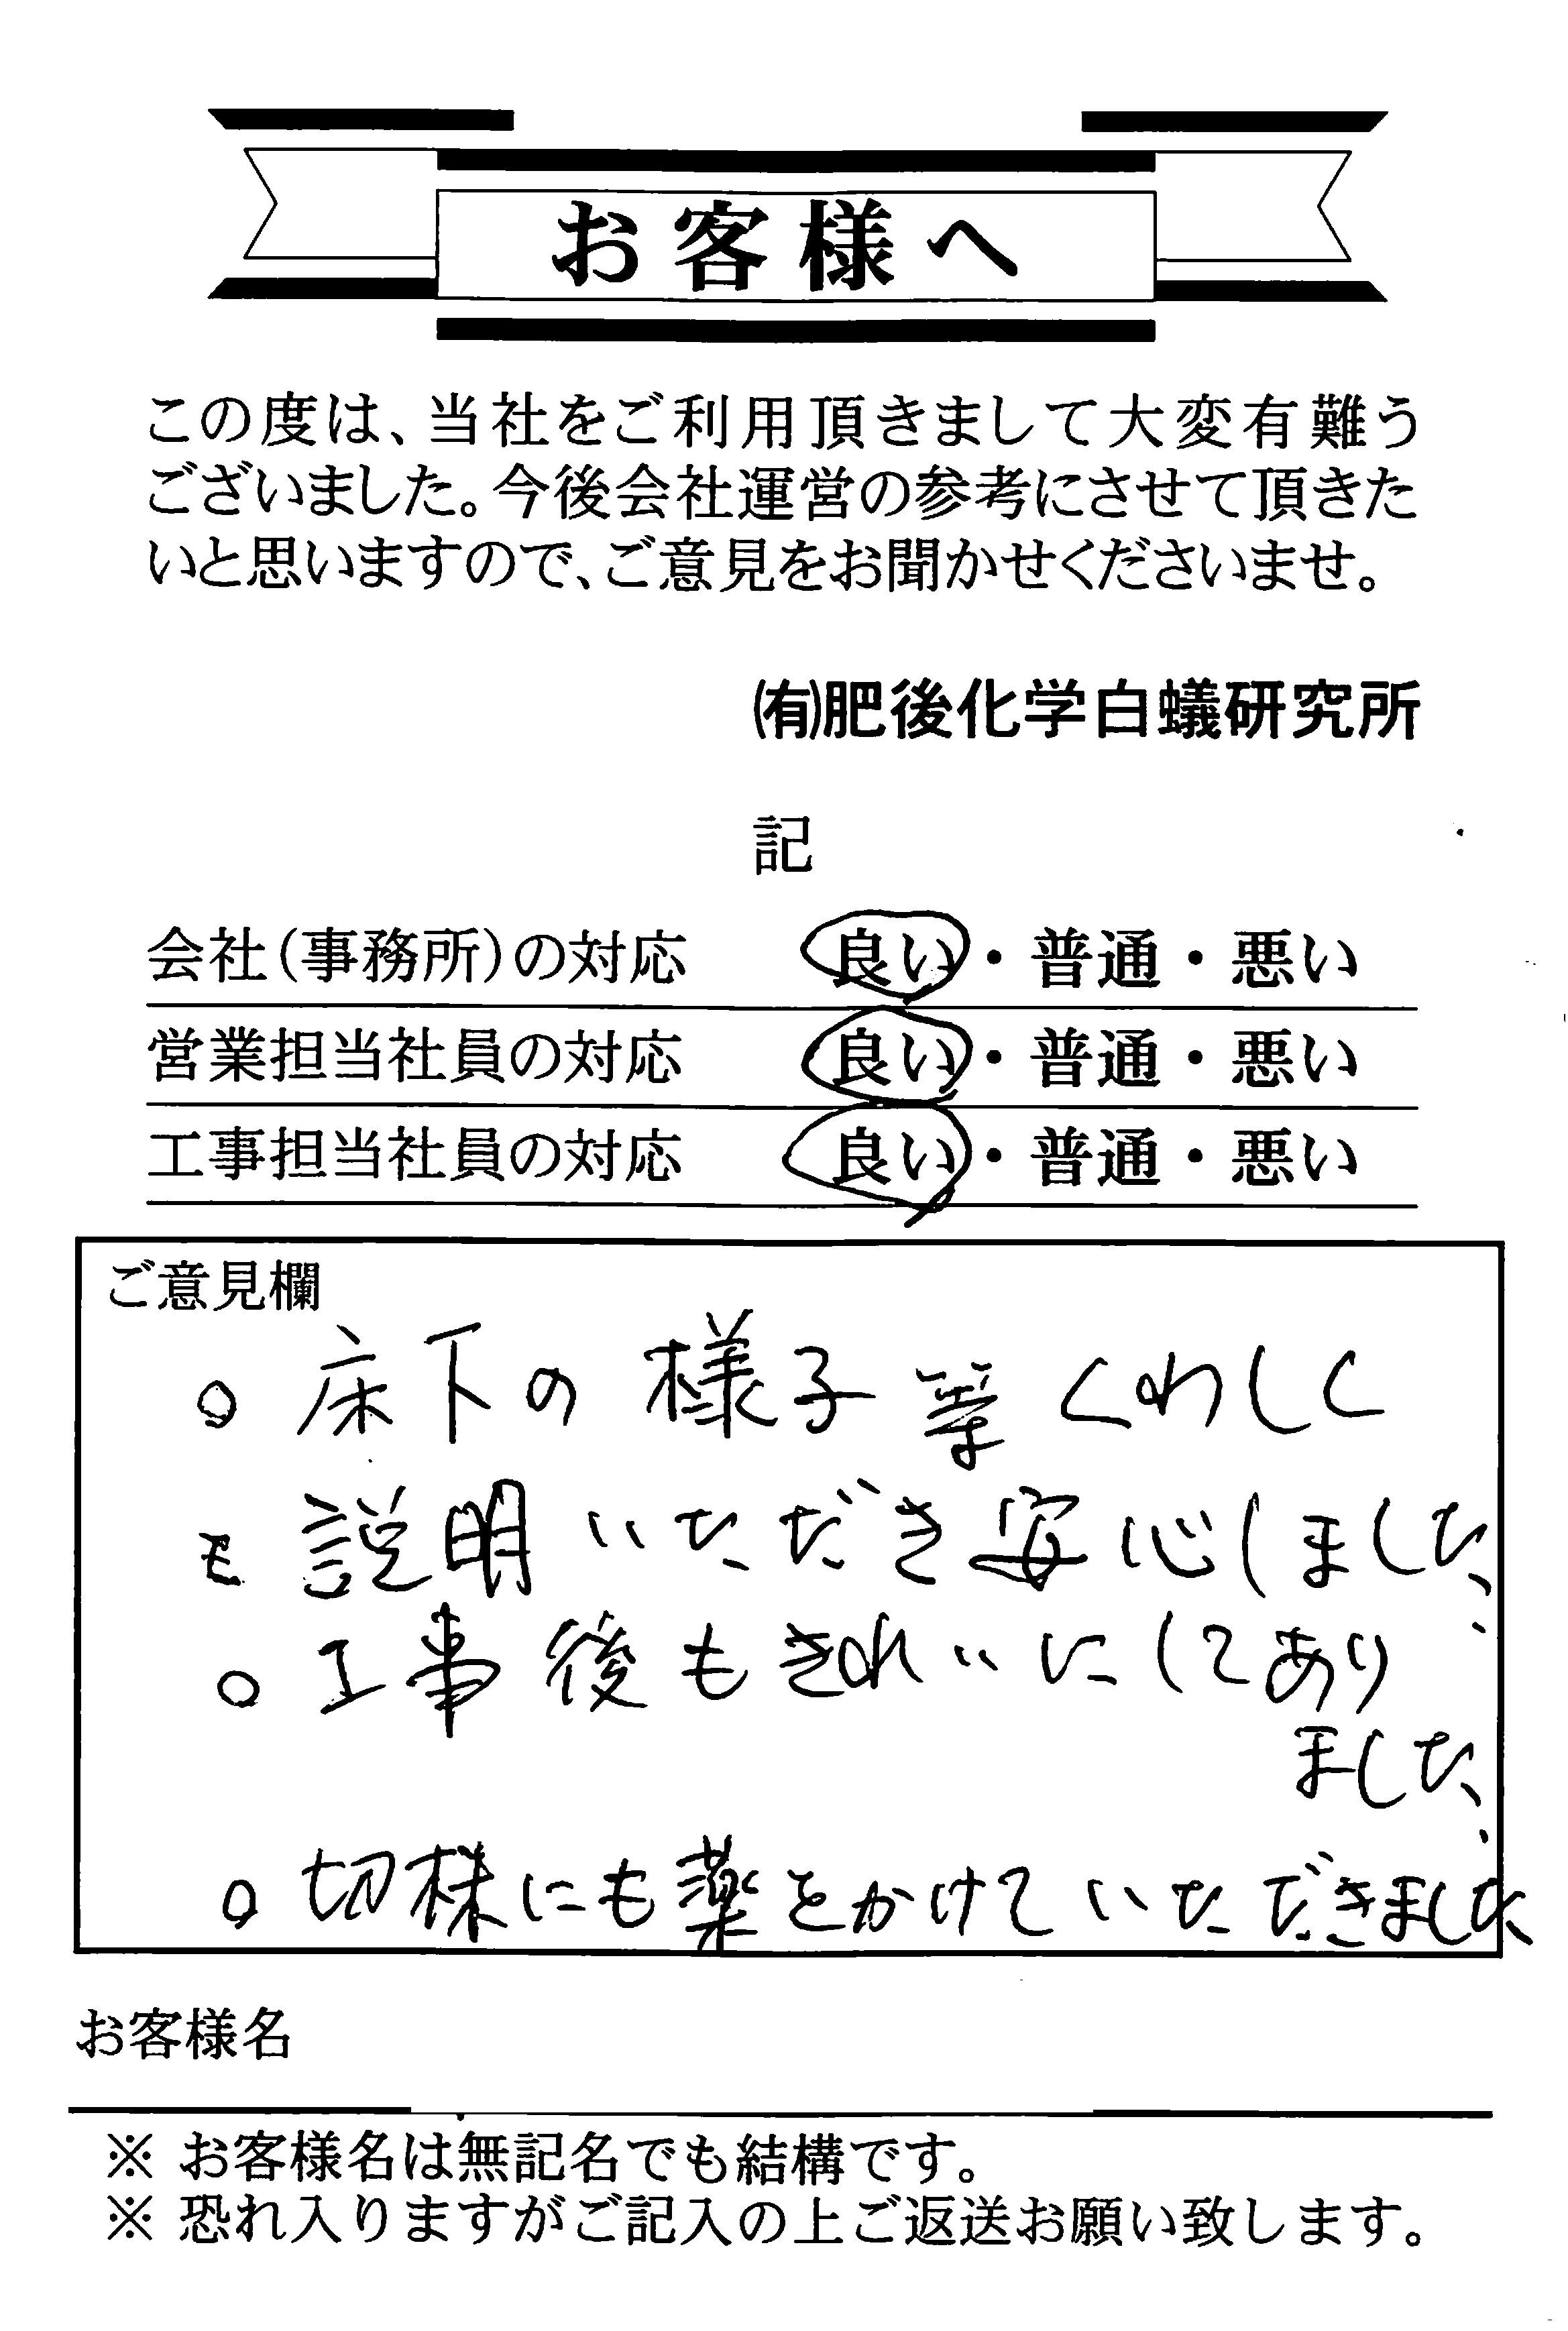 お客様へ
この度は、当社をご利用頂きまして大変有難う
ございました。今後会社運営の参考にさせて頂きた
いと思いますので、ご意見をお聞かせくださいませ。
㈲肥後化学白蟻研究所
記
会社(事務所)の対応 良い・普通・悪い
営業担当社員の対応 良い・普通・悪い
工事担当社員の対応 良い・普通・悪い
ご意見欄
○ 床下の様子等くわしく
説明いただき安心しました
○ 工事後もきれいにしてあり
ました
○ 切株にも薬をかけていただきました
お客様名
※ お客様名は無記名でも結構です。
※ 恐れ入りますがご記入の上ご返送お願い致します。